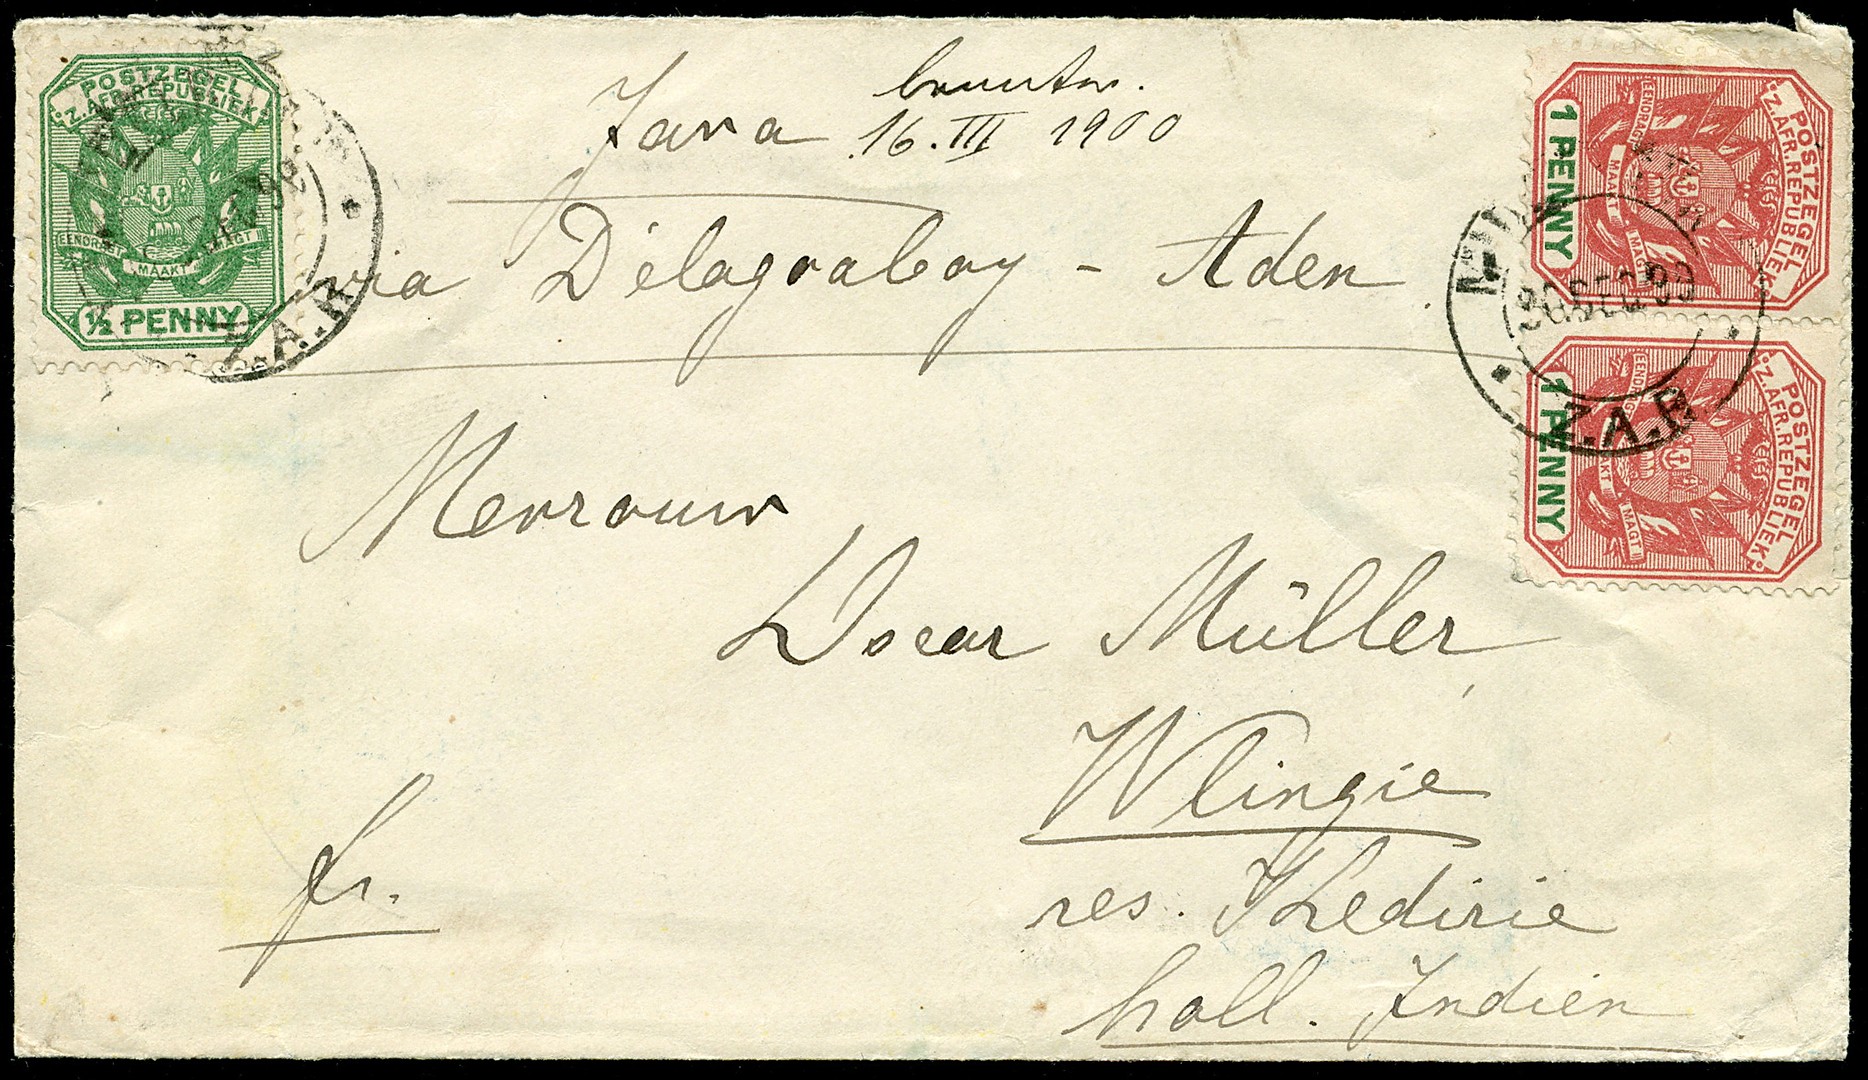 POSTZEGEL
Z. AFR. REPUBLIEK
EENDRAGT MAAKT MAGT
½ PENNY
Z.A.R.
Java
16. III 1900
via Délagoabay - Aden
POSTZEGEL
Z. AFR. REPUBLIEK
EENDRAGT MAAKT MAGT
1 PENNY
Z.A.R.
POSTZEGEL
Z. AFR. REPUBLIEK
EENDRAGT MAAKT MAGT
1 PENNY
Mevrouw
Oscar Müller
Wlingie
res. Kedirie
holl. Indien
fr.